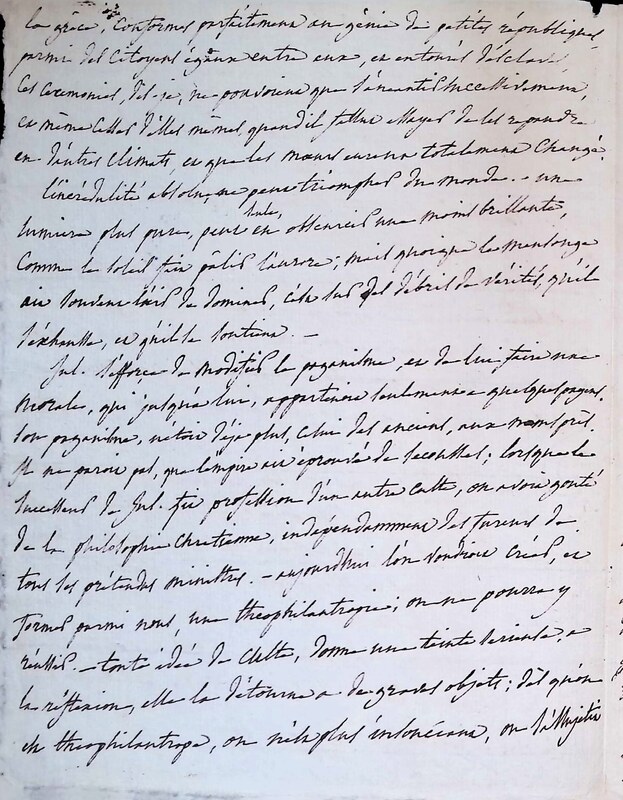 la grèce, conformes parfaitement au génie de petites républiques,
parmi des citoyens égaux entre eux, et entourés d'esclaves,
ces ceremonies, dis-je, ne pouvoient que s'anéantir successivement,
et même celles d'elles mêmes, quand il fallut essayer de les repandre
en d'autres climats, et que les mœurs eurent totalement changé.
l'incrédulité absolue, ne peut triompher du monde. - une
lumiere plus pure, peut seule, en obscurcir une moins brillante,
comme le soleil fait pâlir l'aurore; mais quoique le mensonge
ait souvent l'air de dominer, c'est sur des débris de vérités, qu'il
s'exhausse, et qu'il se soutient. -
Jul. s'efforce de modifier le paganisme, et de lui faire une
morale, qui jusqu'à lui, appartenoit seulement a quelques payens.
son paganisme, n'étoit déja plus, celui des anciens, aux noms près.
Il ne paroit pas, que l'empire ait éprouvé de secousses; lorsque le
successeur de Jul. fit profession d'un autre culte, on avoit gouté
de la philosophie chretienne, indépendamment des fureurs de
tous les prétendus ministres. - aujourd'hui l'on voudroit créer, et
former parmi nous, une theophilantropie; on ne pourra y
réussir. - toute idée de culte, donne une teinte serieuse, a
la réflexion, elle la détourne a de graves objets; dès qu'on
est theophilantrope, on n'est plus insouciant, on s'assujettit